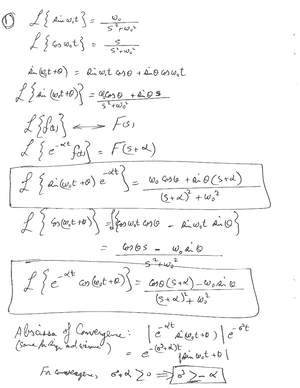 ① L{sin ω₀t} = ω₀ / (s²+ω₀²)
L{cos ω₀t} = s / (s²+ω₀²)
sin(ω₀t+θ) = sin ω₀t cos θ + sin θ cos ω₀t
L{sin(ω₀t+θ)} = (ω₀ cos θ + sin θ s) / (s²+ω₀²)
L{f(t)} ⟷ F(s)
L{e^(-αt) f(t)} = F(s+α)
L{sin(ω₀t+θ) e^(-αt)} = (ω₀ cos θ + sin θ (s+α)) / ((s+α)² + ω₀²)
L{cos(ω₀t+θ)} = L{cos ω₀t cos θ - sin ω₀t sin θ}
= (cos θ s - ω₀ sin θ) / (s²+ω₀²)
L{e^(-αt) cos(ω₀t+θ)} = (cos θ (s+α) - ω₀ sin θ) / ((s+α)² + ω₀²)
Abscissa of Convergence: | e^(-αt) sin(ω₀t+θ) | e^(-σt)
(same for sin and cosine) = e^(-(σ+α)t) |sin ω₀t+θ|
For convergence, σ+α > 0 ⇒ σ > -α